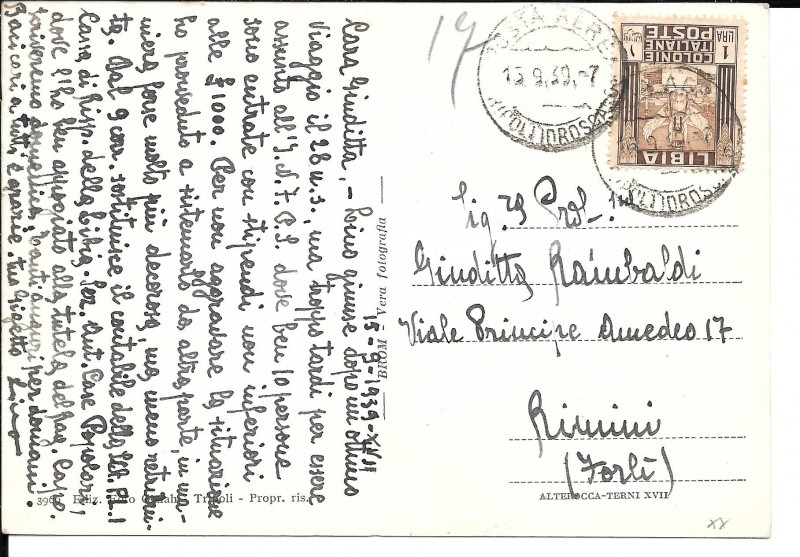 15-9-1939-XVII
Cara Giuditta, - Lino giunse dopo un ottimo
viaggio il 28 u.s., ma troppo tardi per essere
assunto all'I.N.F.P.S. dove ben 10 persone
sono entrate con stipendi non inferiori
alle £ 1000. Per non aggravare la situazione
ho provveduto a sistemarlo da altra parte, in ma-
niera forse molto più decorosa, ma meno retribui-
ta. Dal 9 corr. sostituisce il contabile della
Cassa di Risp. della Libia. Per. Aut. Case Popolari,
dove l'ho ben appoggiato alla tutela del Rag. Cape.
Scriveremo Tanti auguri per domani.
Baci cari a tutti, e grazie, tuo Gigetto
Lino
BROM - Vera fotografia
3969 Ediz. Tripoli - Propr. ris.
19
POSTA AEREA
15.9.39.-7
TRIPOLI
1 LIRA
COLONIE
ITALIANE
POSTE
LIRA 1
LIBIA
Sig.ra Prof.
Giuditta Rambaldi
Viale Principe Amedeo 17
Rimini
(Forlì)
ALTEROCCA-TERNI XVII
XX